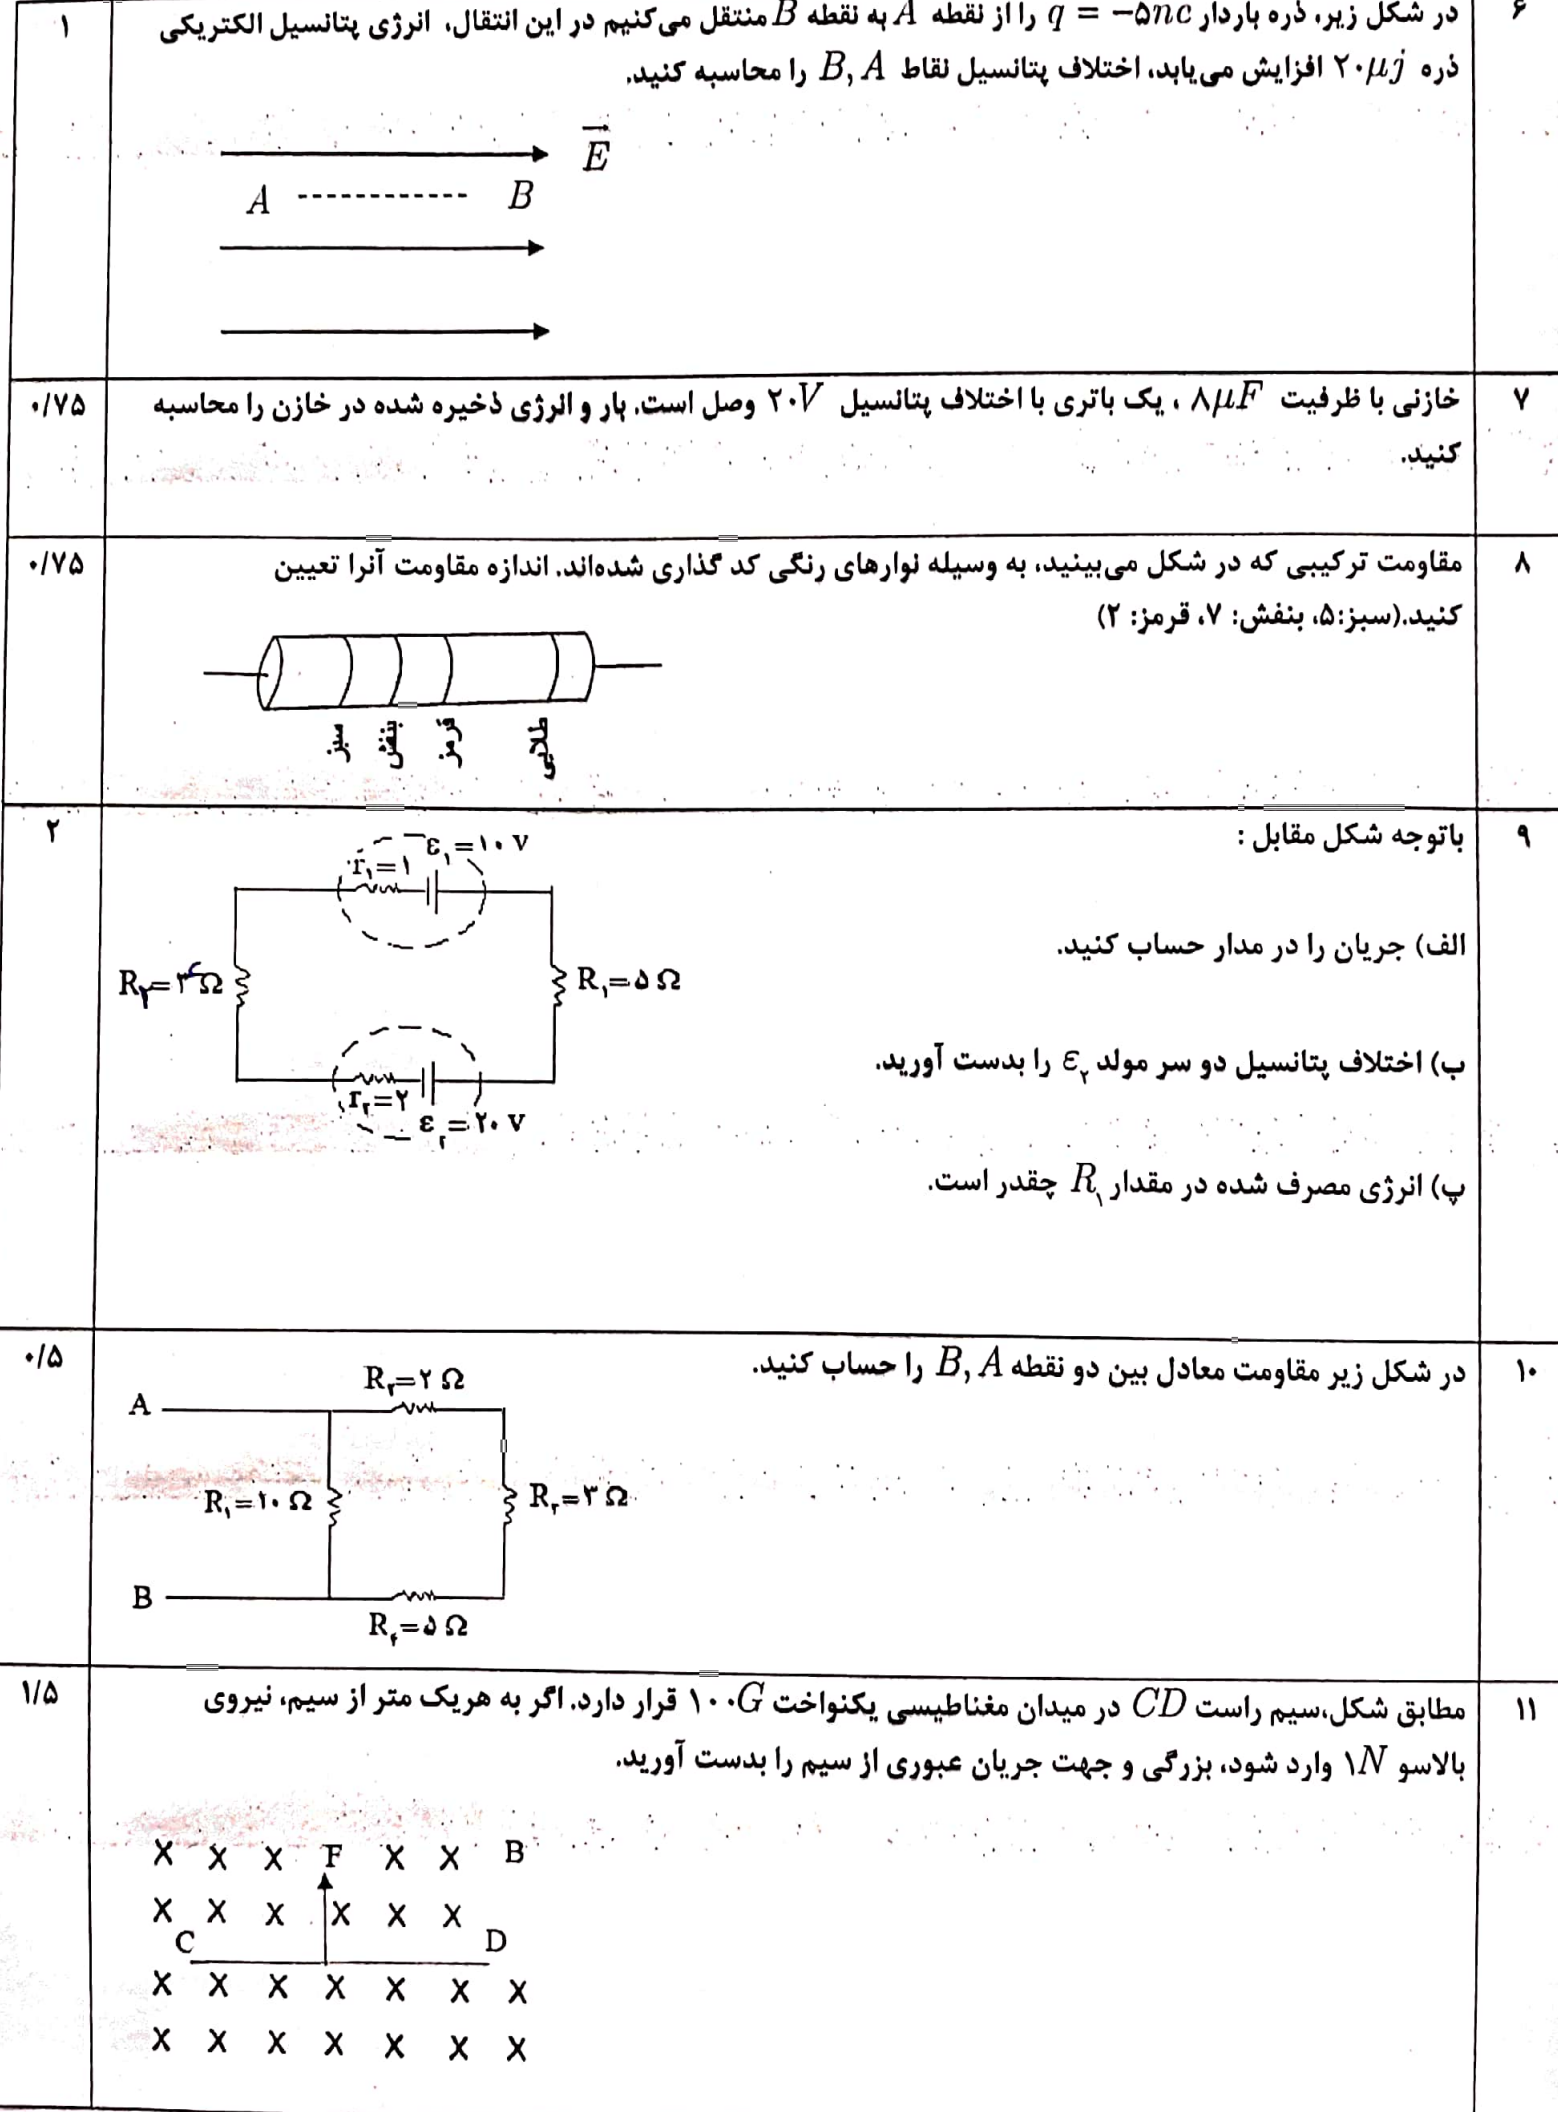 ۶
در شکل زیر، ذره باردار q = −۵nc را از نقطه A به نقطه B منتقل می‌کنیم در این انتقال، انرژی پتانسیل الکتریکی
۱
ذره ۲۰μj افزایش می‌یابد، اختلاف پتانسیل نقاط B, A را محاسبه کنید.
E
A ------------ B
۷
خازنی با ظرفیت ۸μF ، یک باتری با اختلاف پتانسیل ۲۰V وصل است. بار و انرژی ذخیره شده در خازن را محاسبه
۰/۷۵
کنید.
۸
مقاومت ترکیبی که در شکل می‌بینید، به وسیله نوارهای رنگی کد گذاری شده‌اند. اندازه مقاومت آنرا تعیین
۰/۷۵
کنید.(سبز:۵، بنفش: ۷، قرمز: ۲)
سبز
بنفش
قرمز
طلایی
۹
باتوجه شکل مقابل :
۲
ε₁=۱۰ v
r₁=۱
الف) جریان را در مدار حساب کنید.
R₂=۳Ω
R₁=۵Ω
ب) اختلاف پتانسیل دو سر مولد ε₂ را بدست آورید.
r₂=۲
ε₂=۲۰ v
پ) انرژی مصرف شده در مقدار R₁ چقدر است.
۱۰
در شکل زیر مقاومت معادل بین دو نقطه B, A را حساب کنید.
۰/۵
R₂=۲Ω
A
R₁=۱۰Ω
R₃=۳Ω
B
R₄=۵Ω
۱۱
مطابق شکل،سیم راست CD در میدان مغناطیسی یکنواخت ۱۰۰G قرار دارد. اگر به هریک متر از سیم، نیروی
۱/۵
بالاسو ۱N وارد شود، بزرگی و جهت جریان عبوری از سیم را بدست آورید.
X X X F X X B
X X X X X X
C D
X X X X X X X
X X X X X X X